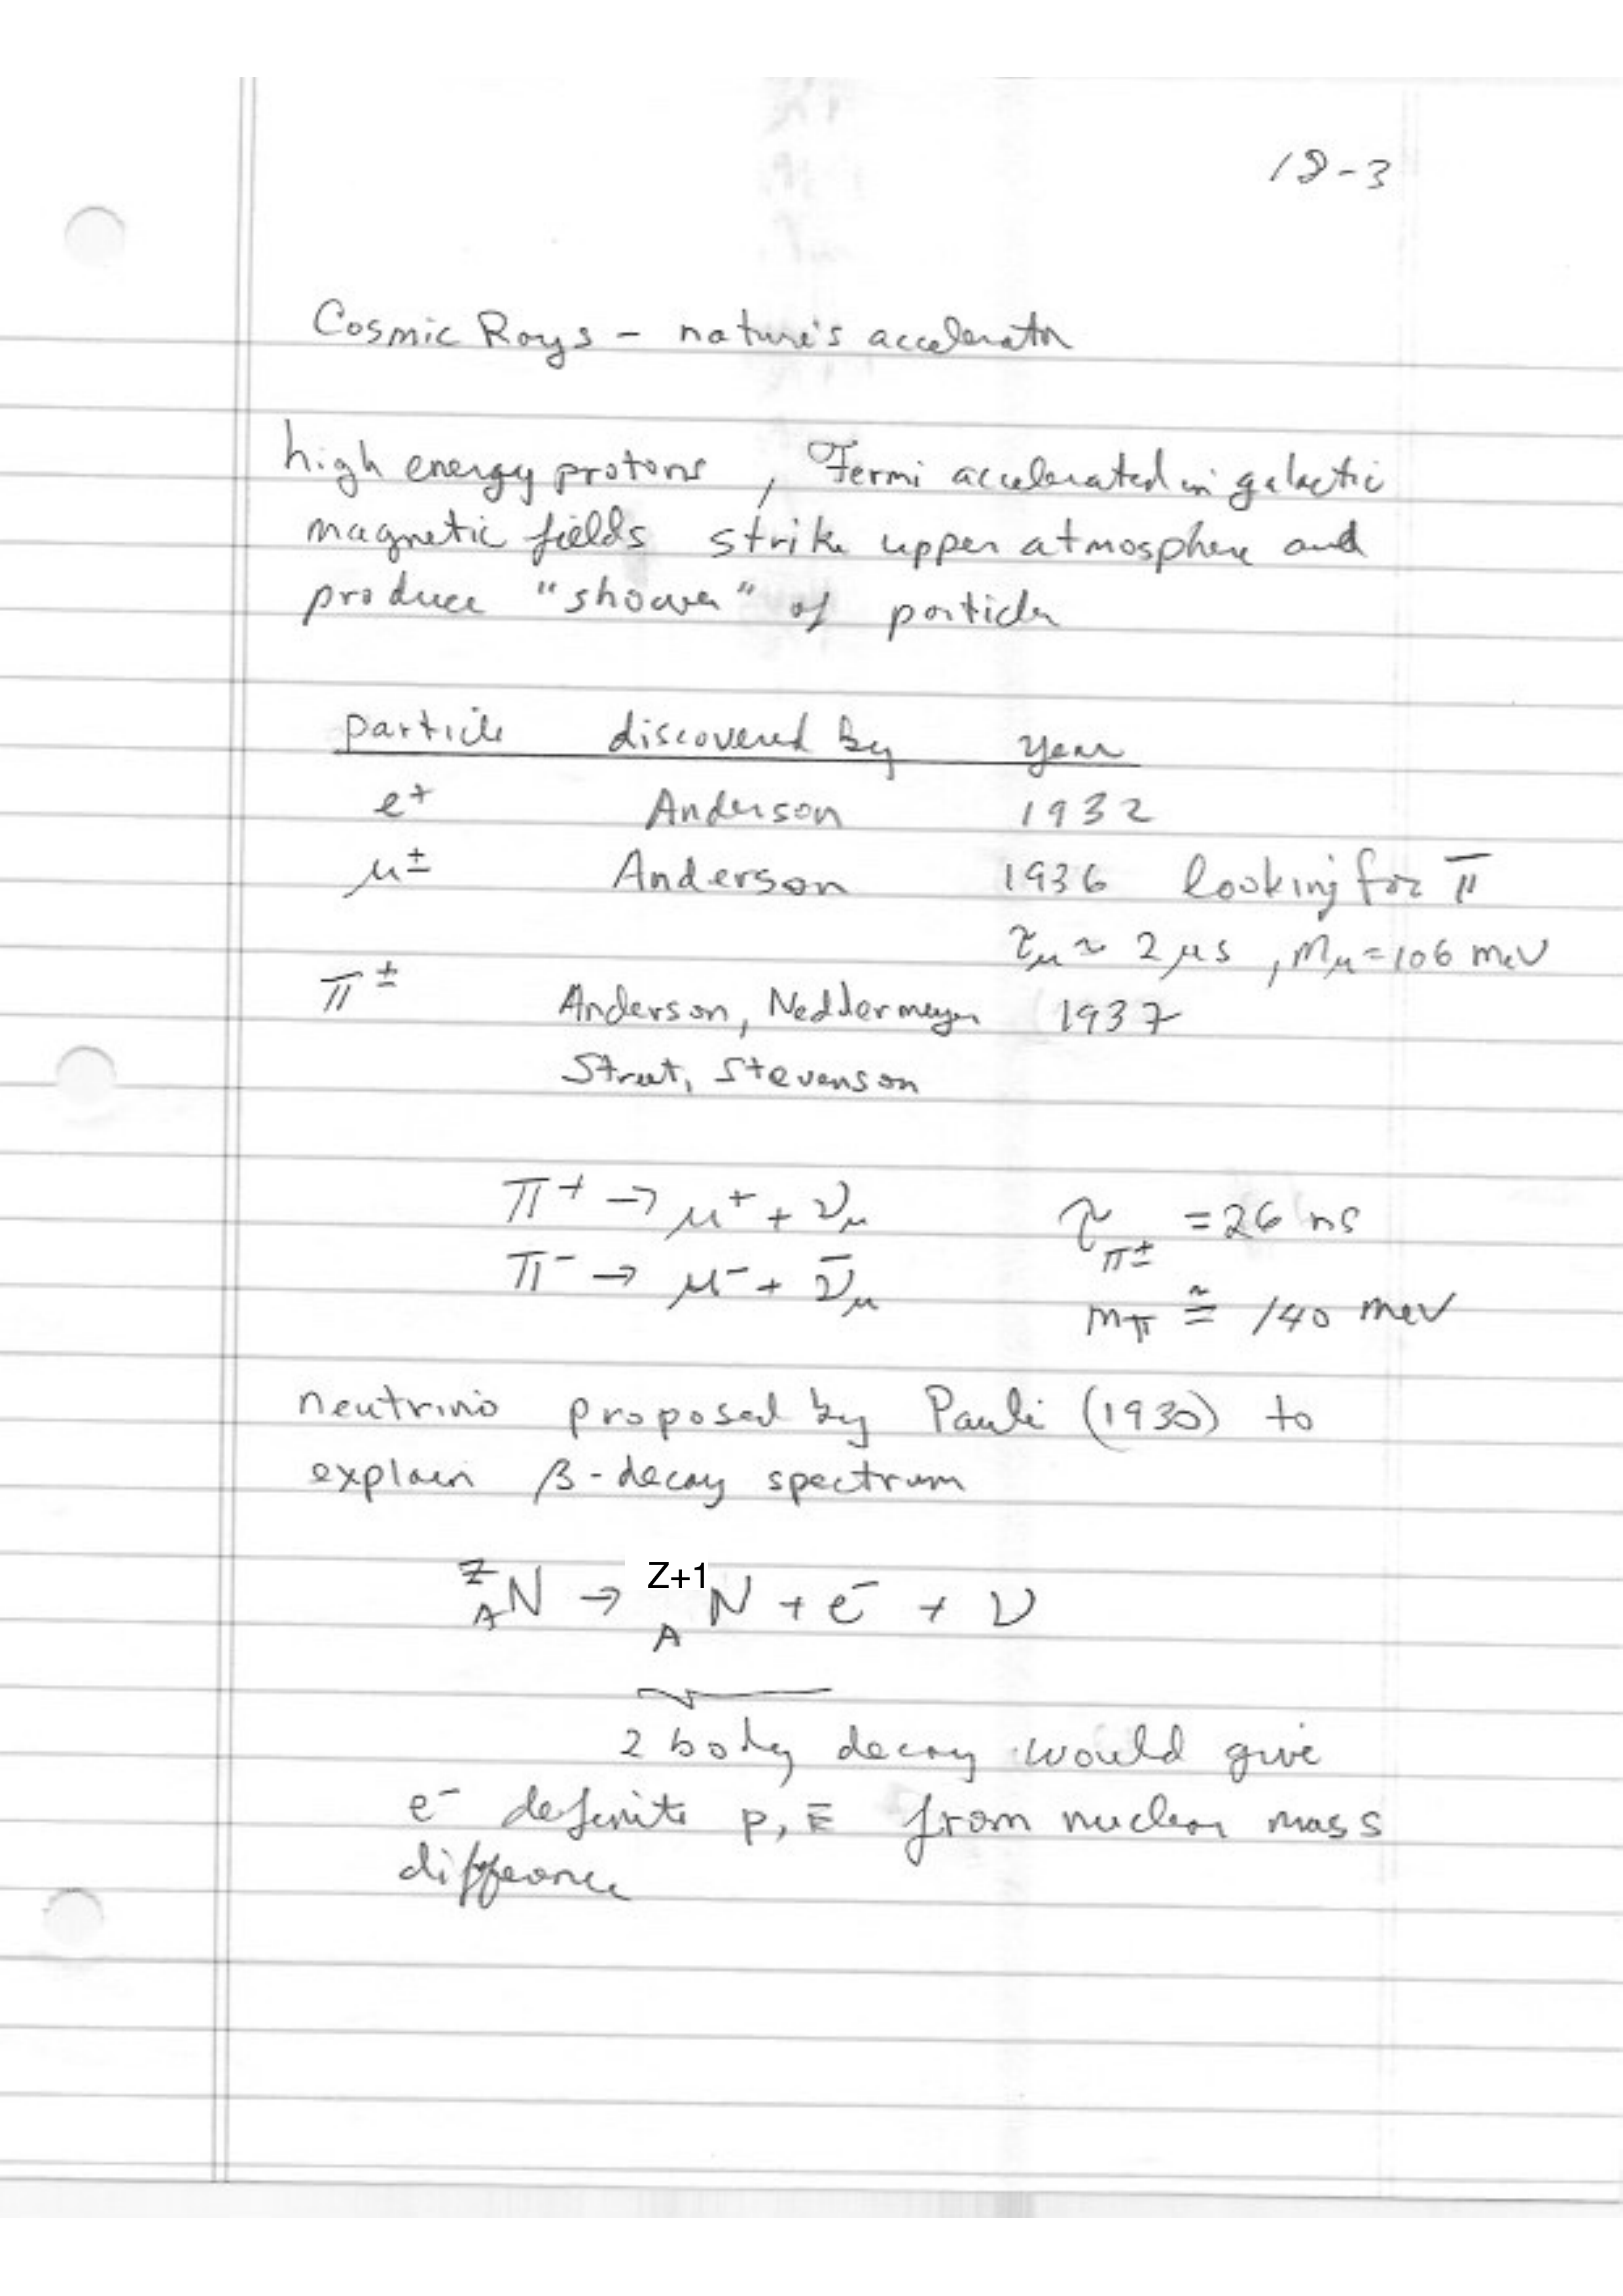 18-3
Cosmic Rays - nature's accelerator
high energy protons, Fermi accelerated in galactic
magnetic fields strike upper atmosphere and
produce "shower" of particles
particle discovered by year
e⁺ Anderson 1932
μ± Anderson 1936 looking for π
τ_μ ~ 2 μs, m_μ = 106 MeV
π± Anderson, Neddermeyer 1937
Street, Stevenson
π⁺ → μ⁺ + ν_μ τ_π± = 26 ns
π⁻ → μ⁻ + ν̄_μ m_π ≅ 140 MeV
neutrino proposed by Pauli (1930) to
explain β-decay spectrum
^Z_A N → ^Z+1_A N + e⁻ + ν
2 body decay would give
e⁻ definite p, E from nuclear mass
difference